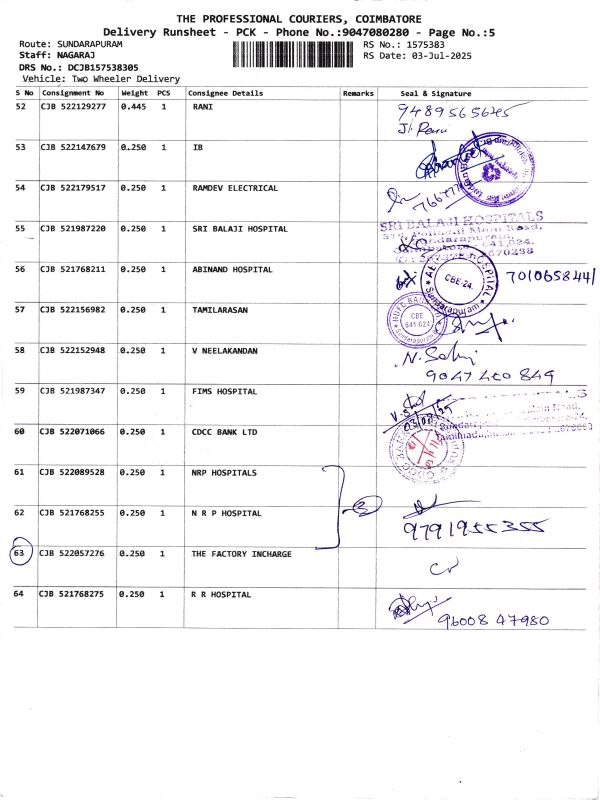 THE PROFESSIONAL COURIERS, COIMBATORE
Delivery Runsheet - PCK - Phone No.:9047080280 - Page No.:5
Route: SUNDARAPURAM RS No.: 1575383
Staff: NAGARAJ RS Date: 03-Jul-2025
DRS No.: DCJB157538305
Vehicle: Two Wheeler Delivery
S No Consignment No Weight PCS Consignee Details Remarks Seal & Signature
52 CJB 522129277 0.445 1 RANI 9489565645
53 CJB 522147679 0.250 1 IB
54 CJB 522179517 0.250 1 RAMDEV ELECTRICAL
55 CJB 521987220 0.250 1 SRI BALAJI HOSPITAL SRI BALAJI HOSPITALS
56 CJB 521768211 0.250 1 ABINAND HOSPITAL CBE-24. Sundarapuram 701065844/
57 CJB 522156982 0.250 1 TAMILARASAN HDFC BANK CBE 641 024
58 CJB 522152948 0.250 1 V NEELAKANDAN
9047 460 849
59 CJB 521987347 0.250 1 FIMS HOSPITAL
60 CJB 522071066 0.250 1 CDCC BANK LTD
61 CJB 522089528 0.250 1 NRP HOSPITALS
62 CJB 521768255 0.250 1 N R P HOSPITAL 9791955355
63 CJB 522057276 0.250 1 THE FACTORY INCHARGE
64 CJB 521768275 0.250 1 R R HOSPITAL 96008 47980